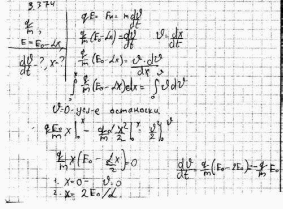 3.374
q/m,
E = E₀ - αx
dϑ/dt - ?, x - ?
qE = Fм = m dϑ/dt
q/m (E₀ - αx) = dϑ/dt ϑ = dx/dt
q/m (E₀ - αx) = ϑ·dϑ/dx
∫₀ˣ q/m (E₀ - αx) dx = ∫₀^ϑ ϑ dϑ
ϑ=0 - усл-е остановки
qE₀/m x |₀ˣ - q/m α x²/2 |₀ˣ = ϑ²/2 |₀^ϑ
q/m x (E₀ - αx/2) = 0
1. x=0 - ϑ=0
2. x = 2E₀/α
dϑ/dt = q/m (E₀ - 2E₀) = - q/m E₀